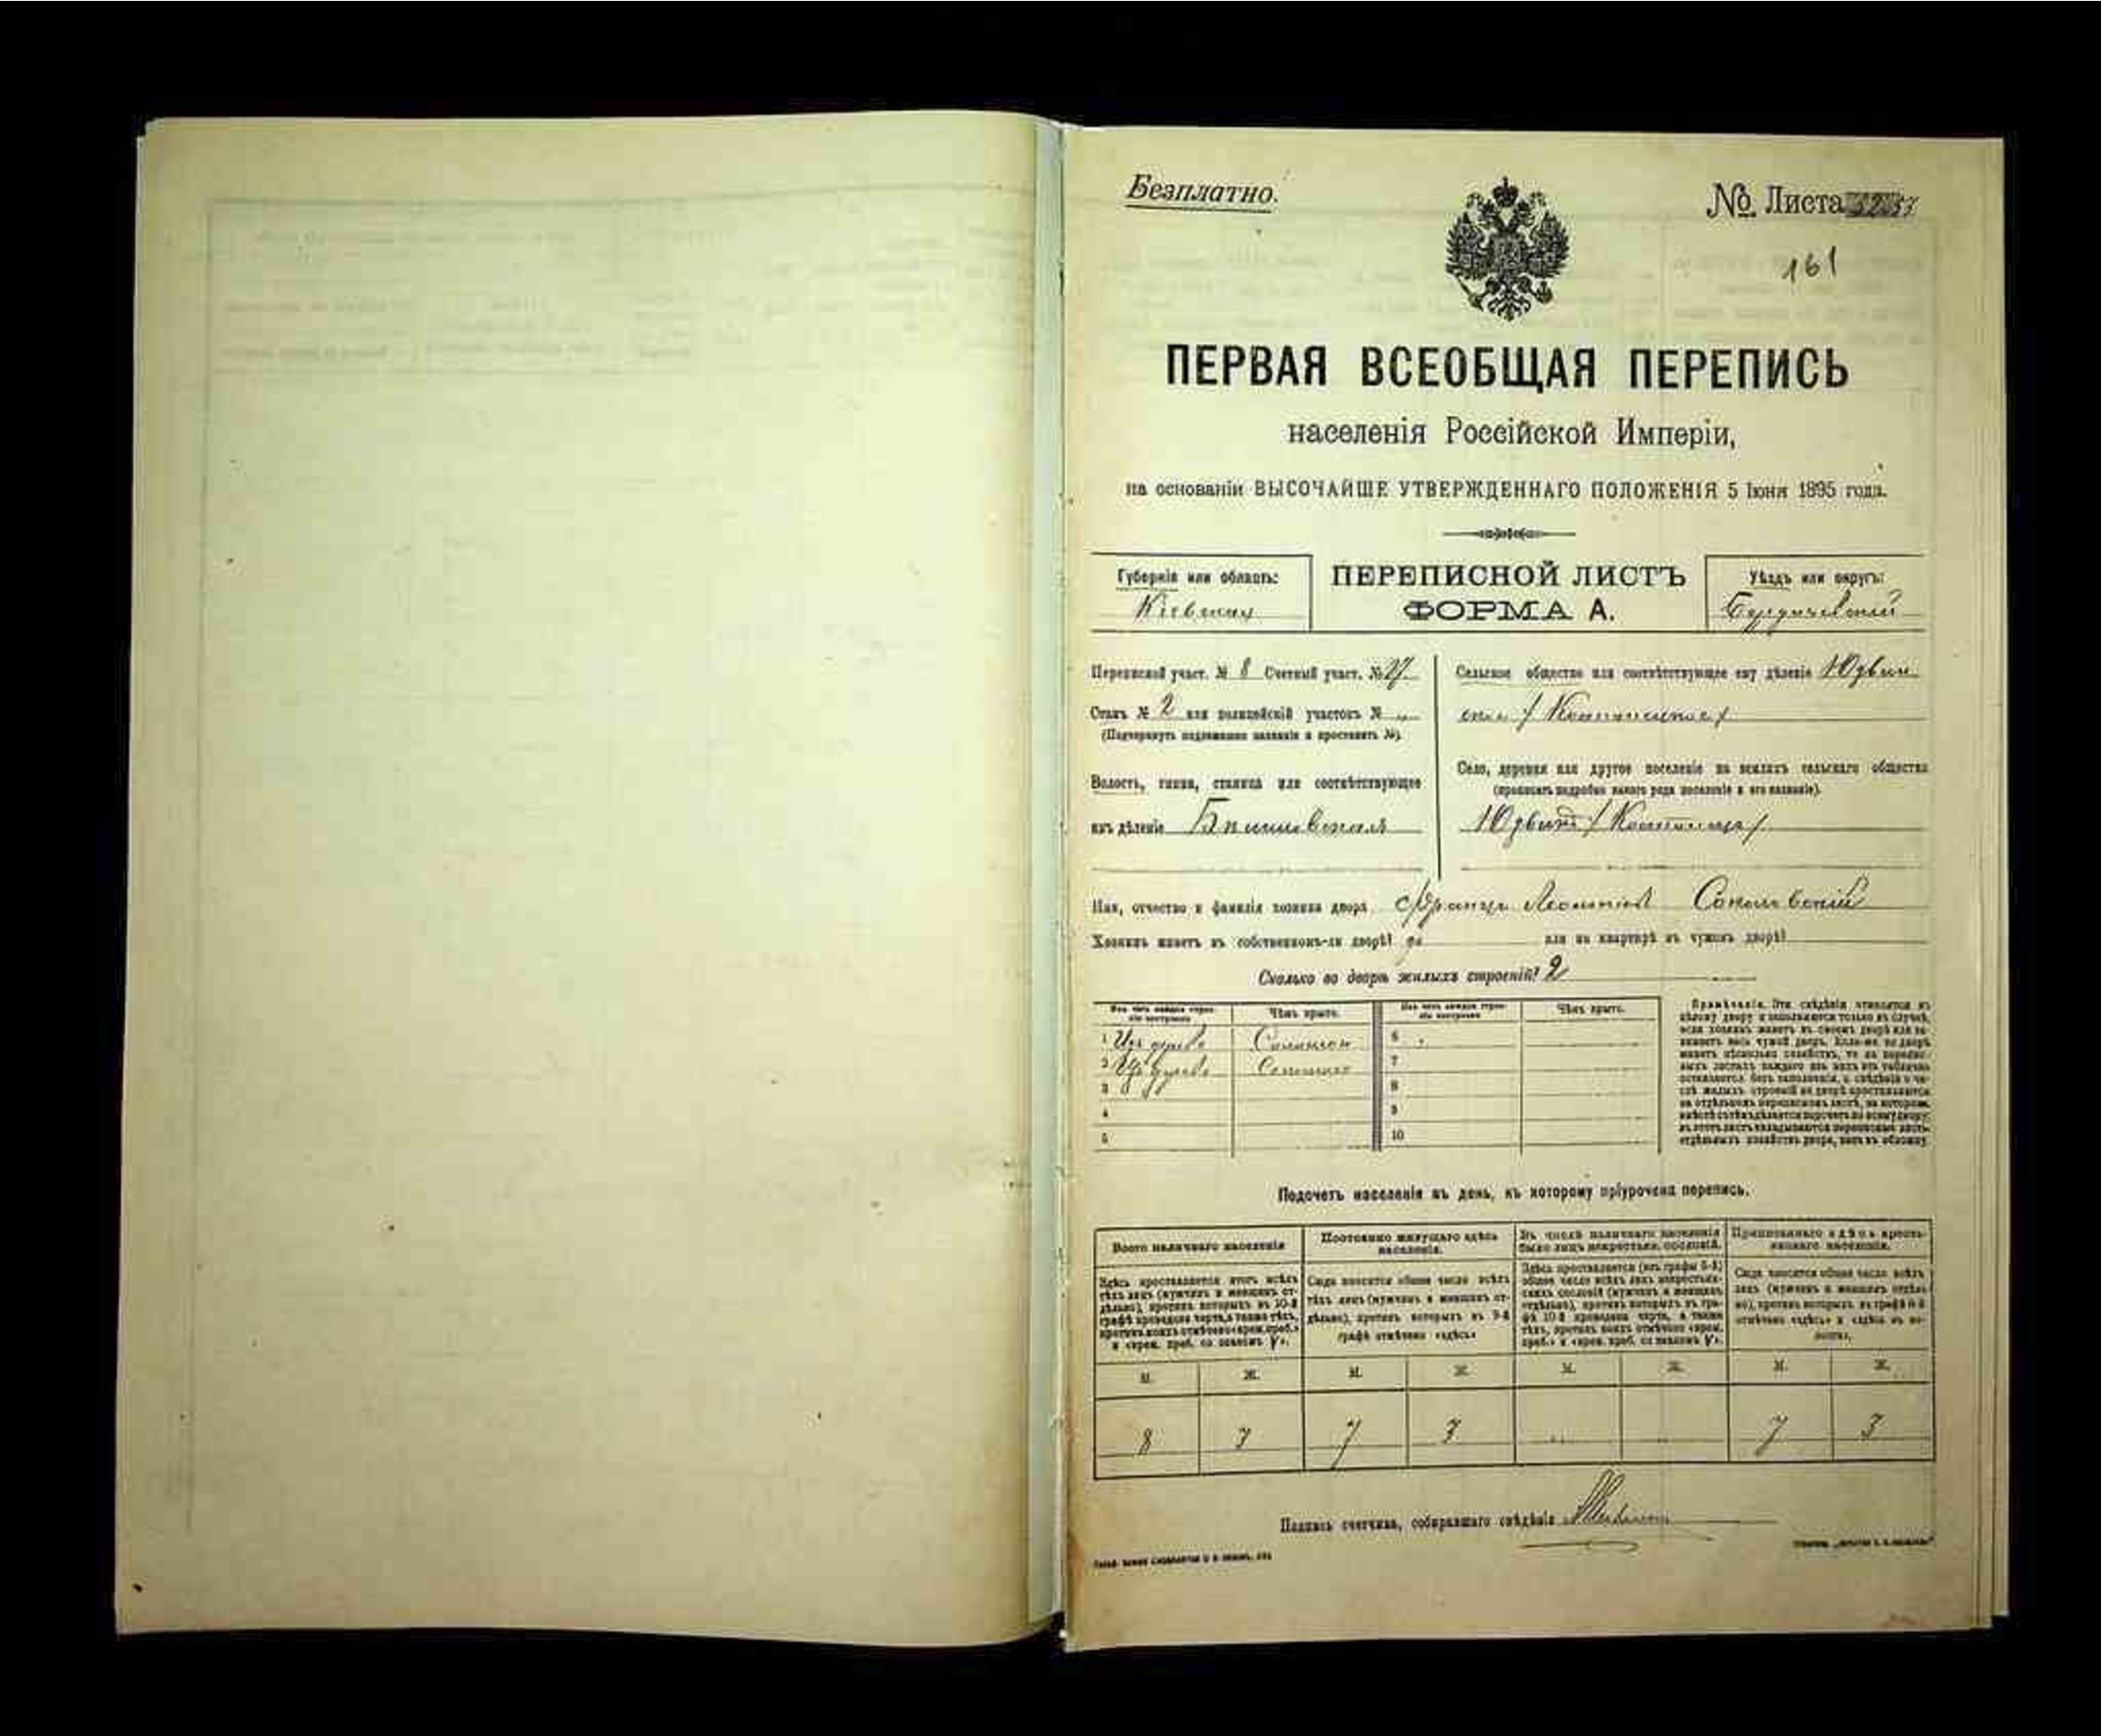 Безплатно.
№ Листа
161
ПЕРВАЯ ВСЕОБЩАЯ ПЕРЕПИСЬ
населенія Россійской Имперіи,
на основаніи ВЫСОЧАЙШЕ УТВЕРЖДЕННАГО ПОЛОЖЕНІЯ 5 Іюня 1895 года.
Губернія или область:
Кіевская
ПЕРЕПИСНОЙ ЛИСТЪ
ФОРМА А.
Уѣздъ или округъ:
Бердичевскій
Переписной участ. № 8 Счетный участ. № 27
Станъ № 2 или полицейскій участокъ № „
(Подчеркнуть подлежащее названіе и проставить №).
Волость, гмина, станица или соотвѣтствующее
имъ дѣленіе
Сельское общество или соотвѣтствующее ему дѣленіе
Село, деревня или другое поселеніе на земляхъ сельскаго общества
(прописать подробно какого рода поселеніе и его названіе).
Имя, отчество и фамилія хозяина двора Францъ Соколовскій
Хозяинъ живетъ въ собственномъ-ли дворѣ? да или на квартирѣ въ чужомъ дворѣ?
Сколько во дворѣ жилыхъ строеній? 2
Изъ чего каждое строе-
ніе построено
Чѣмъ крыто.
Изъ чего каждое строе-
ніе построено
Чѣмъ крыто.
1 Изъ дерева Соломою 6
2 Изъ дерева Соломою 7
3 8
4 9
5 10
Примѣчаніе. Эти свѣдѣнія относятся къ
цѣлому двору и заполняются только въ случаѣ,
если хозяинъ живетъ въ своемъ дворѣ или за-
нимаетъ весь чужой дворъ. Коли-же во дворѣ
живетъ нѣсколько хозяйствъ, то на перепис-
ныхъ листахъ каждаго изъ нихъ эта табличка
оставляется безъ заполненія, а свѣдѣнія о чи-
слѣ жилыхъ строеній во дворѣ проставляются
на отдѣльномъ переписномъ листѣ, на которомъ
вмѣстѣ съ тѣмъ дѣлается подсчетъ по всему двору;
въ этотъ листъ вкладываются переписные листы
отдѣльныхъ хозяйствъ двора, какъ въ обложку.
Подсчетъ населенія въ день, къ которому пріурочена перепись.
Всего наличнаго населенія
Постоянно живущаго здѣсь
населенія.
Въ числѣ наличнаго населенія
было лицъ некрестьян. сословій.
Приписаннаго здѣсь кресть-
янскаго населенія.
Здѣсь проставляется итогъ всѣхъ
тѣхъ лицъ (мужчинъ и женщинъ от-
дѣльно), противъ которыхъ въ 10-й
графѣ проведена черта, а также тѣхъ,
противъ коихъ отмѣчено «врем. преб.»
и «врем. преб. со знакомъ V».
Сюда вносится общее число всѣхъ
тѣхъ лицъ (мужчинъ и женщинъ от-
дѣльно), противъ которыхъ въ 9-й
графѣ отмѣчено «здѣсь»
Здѣсь проставляется (изъ графы 5-й)
общее число всѣхъ лицъ некрестьян-
скихъ сословій (мужчинъ и женщинъ
отдѣльно), противъ которыхъ въ гра-
фѣ 10-й проведена черта, а также
тѣхъ, противъ коихъ отмѣчено «врем.
преб.» и «врем. преб. со знакомъ V».
Сюда вносится общее число всѣхъ
лицъ (мужчинъ и женщинъ отдѣль-
но), противъ которыхъ въ графѣ 8-й
отмѣчено «здѣсь» и «здѣсь въ во-
лости».
М. Ж. М. Ж. М. Ж. М. Ж.
8 3 7 3 7 3
Подпись счетчика, собиравшаго свѣдѣнія